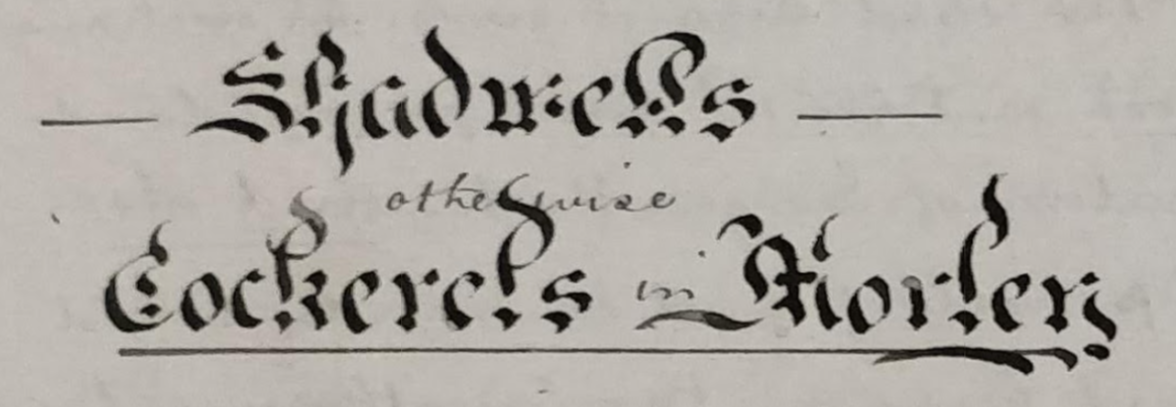 — Shadwells —
otherwise
Cockerels in Morley